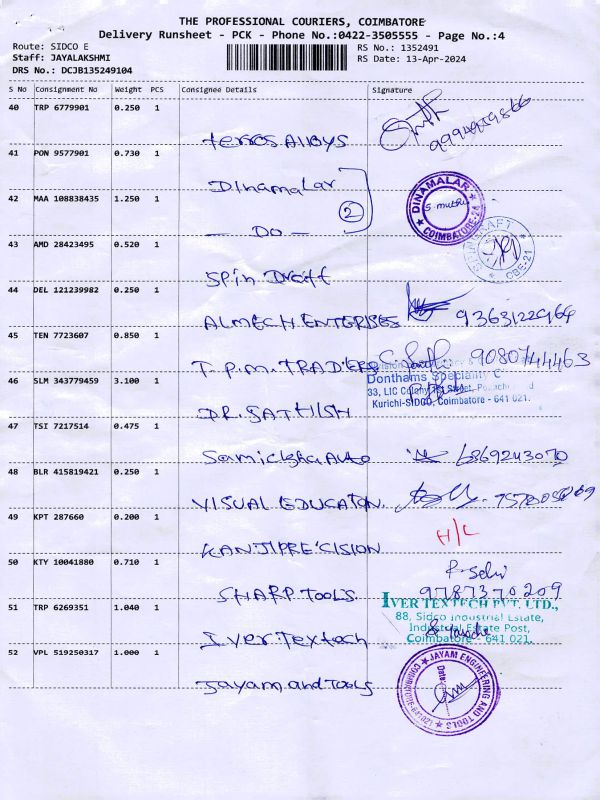 THE PROFESSIONAL COURIERS, COIMBATORE
Delivery Runsheet - PCK - Phone No.:0422-3505555 - Page No.:4
Route: SIDCO E
Staff: JAYALAKSHMI
DRS No.: DCJB135249104
RS No.: 1352491
RS Date: 13-Apr-2024
S No Consignment No Weight PCS Consignee Details Signature
40 TRP 6779901 0.250 1
terros Alloys
41 PON 9577901 0.730 1
Dinamalar
DINAMALAR
S. muthu
COIMBATORE-24
42 MAA 108838435 1.250 1
2
— DO —
43 AMD 28423495 0.520 1
CBE-21
Spin Draft
44 DEL 121239982 0.250 1
ALMECH.ENTERISES 9363122964
45 TEN 7723607 0.850 1
T. P. M. TRADERS 9080744463
46 SLM 343779459 3.100 1
Donthams Speciality
33, LIC Colony, Street,
Kurichi-SIDCO, Coimbatore - 641 021.
DR. SATHISH
47 TSI 7217514 0.475 1
Samiksha Auto 6869243070
48 BLR 415819421 0.250 1
VISUAL EDUCATON.
49 KPT 287660 0.200 1
H/L
KANJI PRECISION
50 KTY 10041880 0.710 1
R. Selvi
SHARP TOOLS. 9787370209
51 TRP 6269351 1.040 1
IVER TEXTECH PVT. LTD.,
88, Sidco Industrial Estate,
Industrial Estate Post,
Coimbatore - 641 021.
Iver Textech
52 VPL 519250317 1.000 1
JAYAM ENGINEERING AND TOOLS
Date:
COIMBATORE-641 021
Jayam and Tools